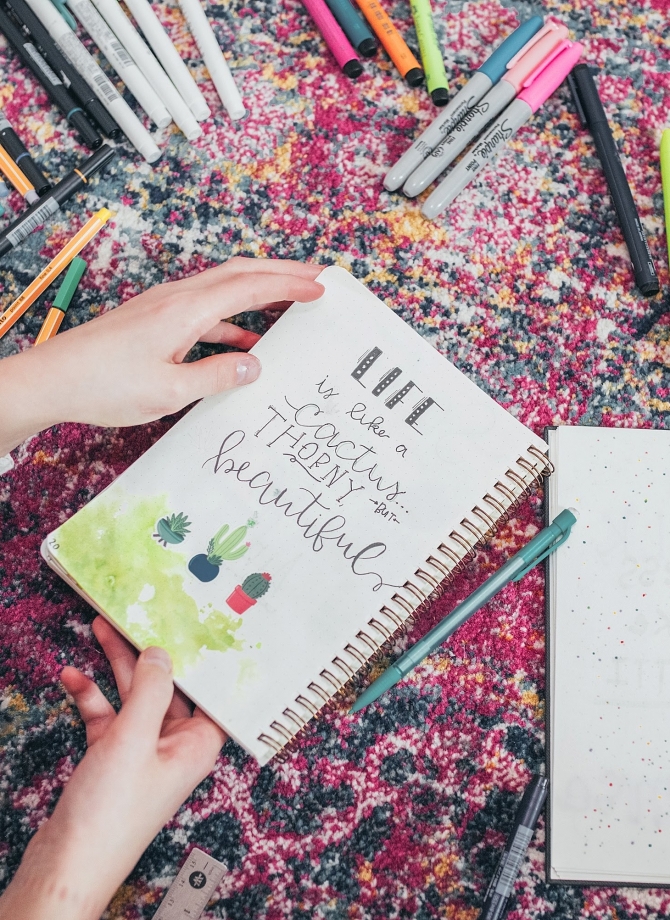 LIFE
is like a
Cactus...
THORNY
-BUT-
beautiful
Sharpie
Sharpie
Sharpie